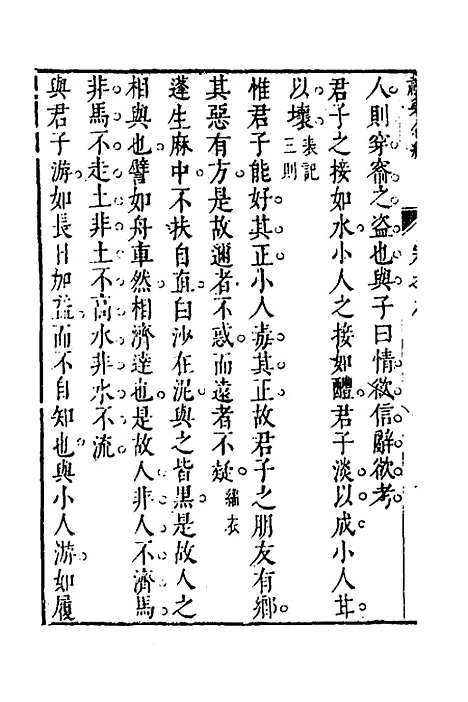 人則穿窬之盜也與子曰情欲信辭欲考
君子之接如水小人之接如醴君子淡以成小人甘
以壞表記三則
惟君子能好其正小人毒其正故君子之朋友有鄉
其惡有方是故邇者不惑而遠者不疑緇衣
蓬生麻中不扶自直白沙在泥與之皆黑是故人之
相與也譬如舟車然相濟達也是故人非人不濟馬
非馬不走土非土不高水非水不流
與君子游如長日加益而不自知也與小人游如履